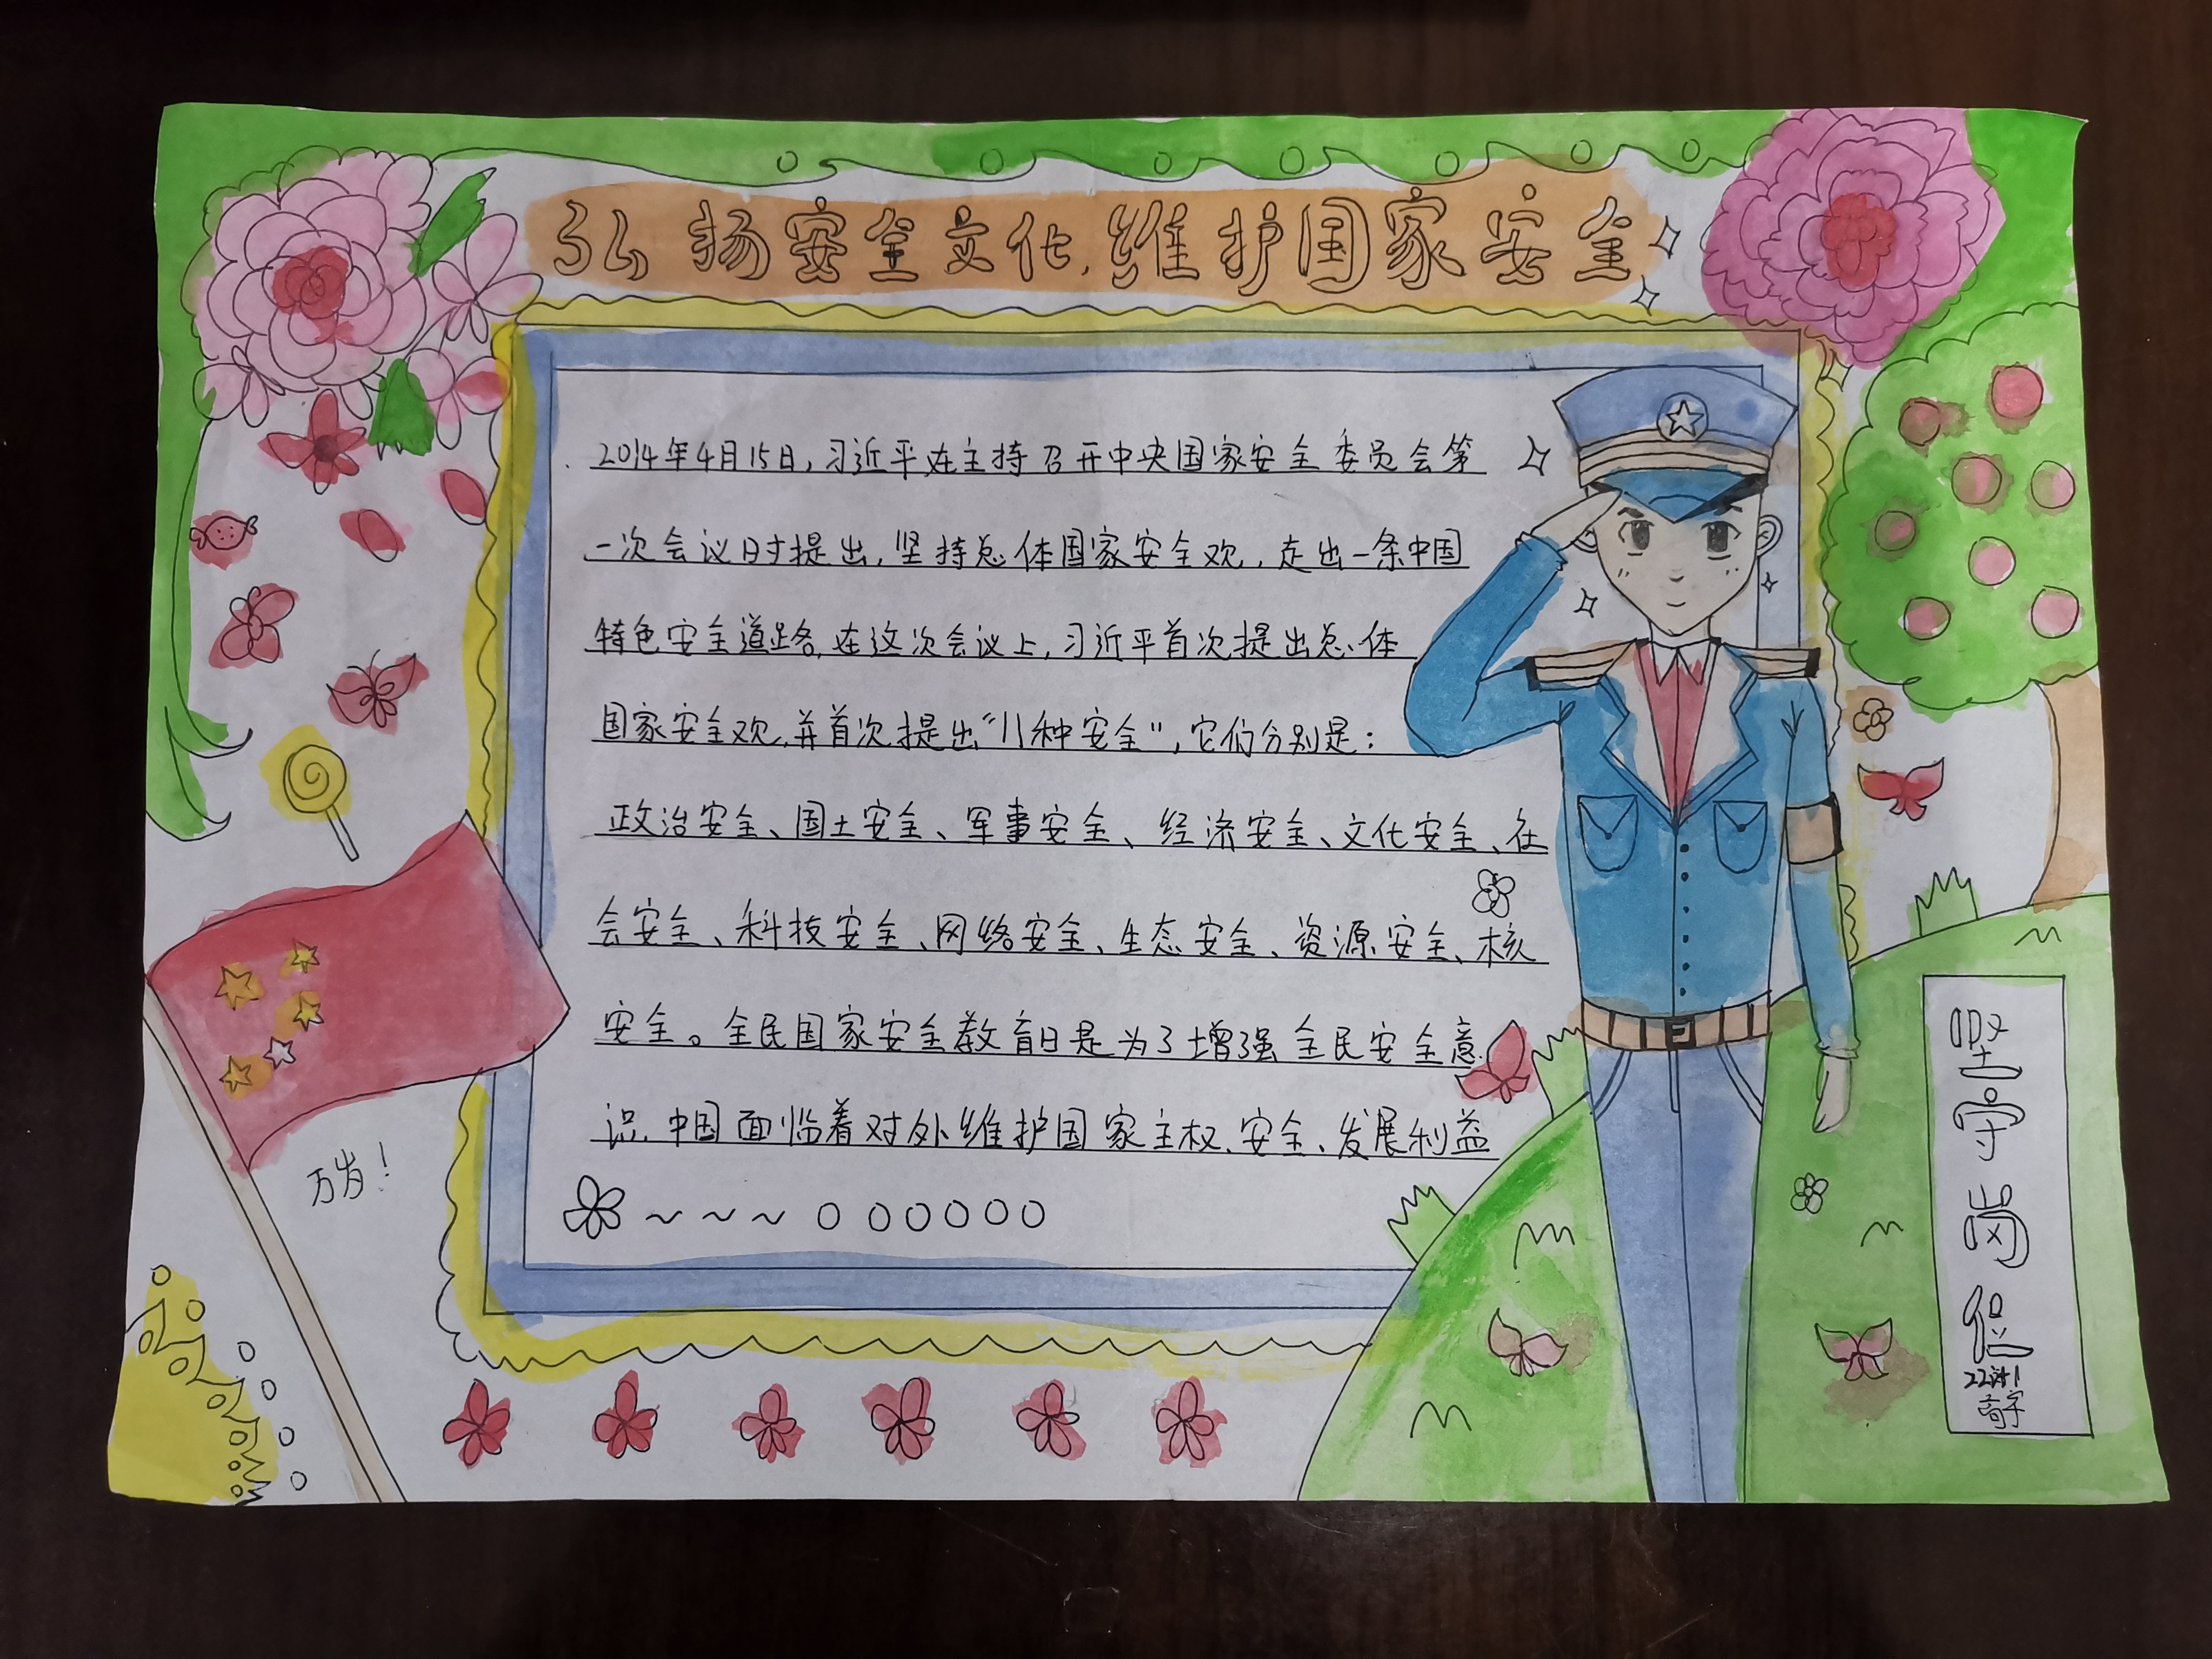 弘扬安全文化,维护国家安全
2014年4月15日,习近平在主持召开中央国家安全委员会第
一次会议时提出,坚持总体国家安全观,走出一条中国
特色安全道路,在这次会议上,习近平首次提出总体
国家安全观,并首次提出“11种安全”,它们分别是:
政治安全、国土安全、军事安全、经济安全、文化安全、社
会安全、科技安全、网络安全、生态安全、资源安全、核
安全。全民国家安全教育日是为了增强全民安全意
识.中国面临着对外维护国家主权、安全、发展利益
万岁!
坚守岗位